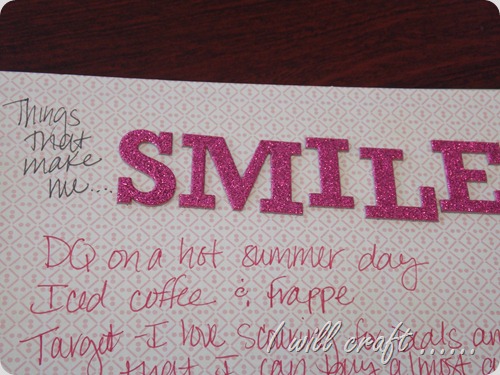 Things
that
make
me....
SMILE
DQ on a hot summer day
Iced coffee & frappe
Target - I love scouring for deals an
that I can buy almost a
I will craft ......